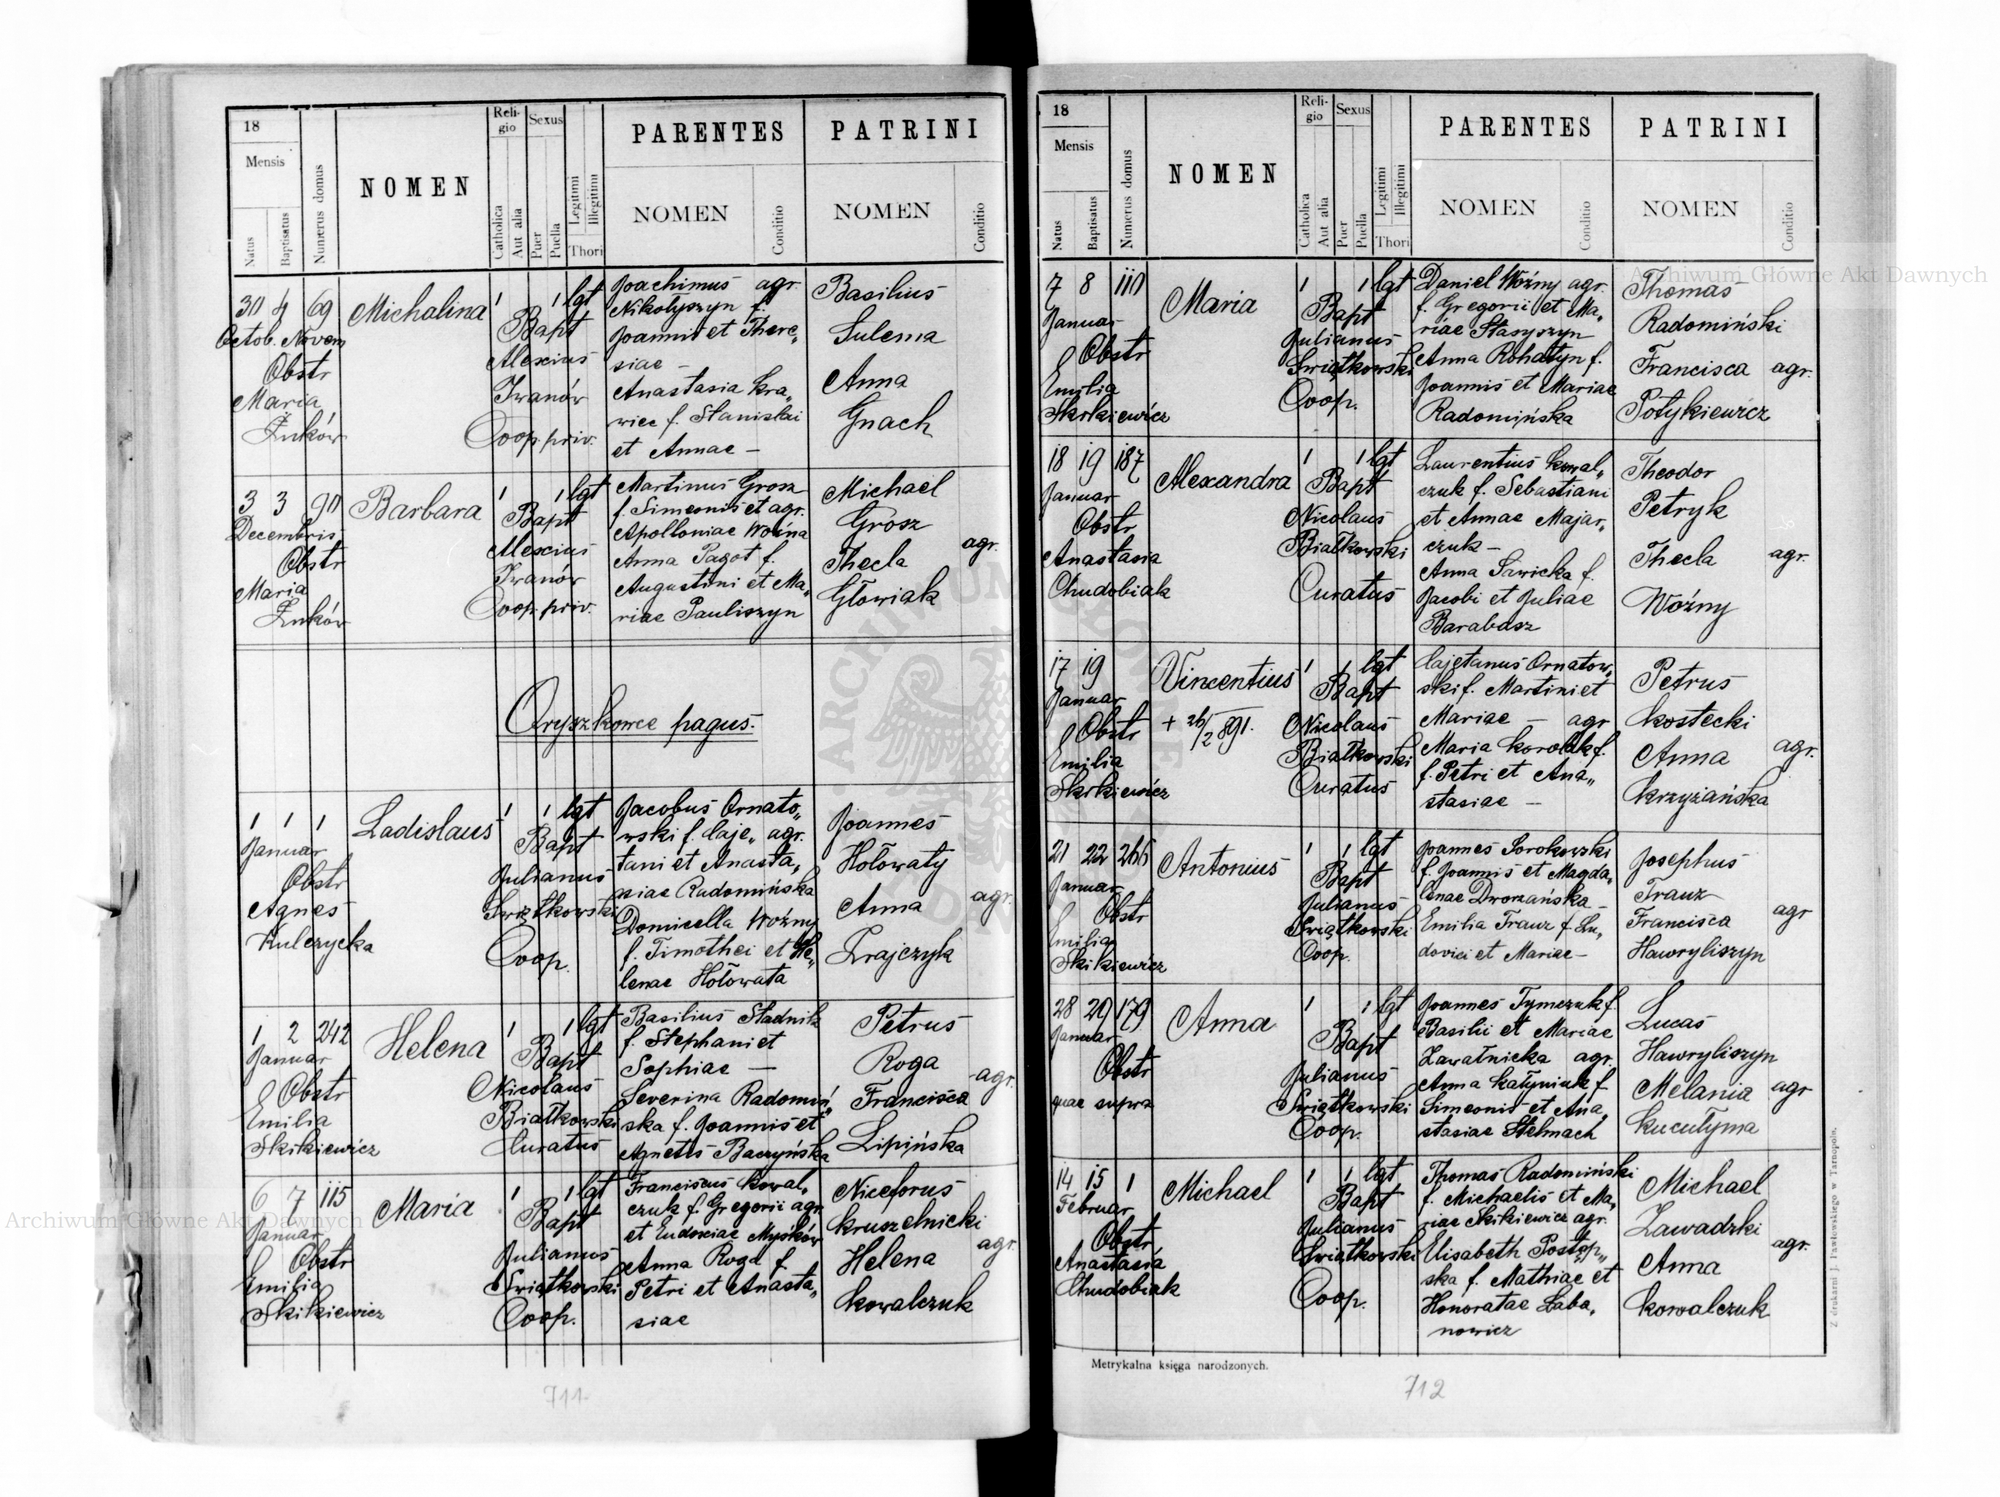 18
Mensis
Natus
Baptisatus
Numerus domus
NOMEN
Religio
Catholica
Aut alia
Sexus
Puer
Puella
Legitimi
Illegitimi
Thori
PARENTES
NOMEN
Conditio
PATRINI
NOMEN
Conditio
30 4 69
Octob. Novem
Obstr
Maria
Żuków
Michalina
1 1 lgt
Bapt
Alexius
Iwanów
Coop. priv.
Joachimus agr.
Nikolyszyn f.
Joannis et There„
siae —
Anastasia Kra„
wiec f. Stanislai
et Annae —
Basilius
Sulema
Anna
Gnach
3 3 90
Decembris
Obstr
Maria
Żuków
Barbara
1 1 lgt
Bapt
Alexius
Iwanów
Coop. priv.
Martinus Grosz
f. Simeonis et agr.
Apolloniae Woźna
Anna Pagot f.
Augustini et Ma„
riae Pauliszyn
Michael
Grosz
Thecla
Głowiak
agr.
Oryszkowce pagus.
1 1 1
Januar
Obstr
Agnes
Kulczycka
Ladislaus
1 1 lgt
Bapt
Julianus
Świątkowski
Coop.
Jacobus Ornato„
wski f. Caje„ agr.
tani et Anasta„
siae Radomińska
Domicella Woźny
f. Timothei et He„
lenae Hołowata
Joannes
Hołowaty
Anna
Zrajczyk
agr.
1 2 242
Januar
Obstr
Emilia
Skikiewicz
Helena
1 1 lgt
Bapt
Nicolaus
Białkowski
Curatus
Basilius Stadnik
f. Stephani et
Sophiae —
Severina Radomiń„
ska f. Joannis et
Agnetis Baczyńska
Petrus
Roga
Francisca
Lipińska
agr.
6 7 115
Januar
Obstr
Emilia
Skikiewicz
Maria
1 1 lgt
Bapt
Julianus
Świątkowski
Coop.
Franciscus Kowal„
czuk f. Gregorii agr.
et Eudociae Myśków
Anna Roga f.
Petri et Anasta„
siae
Niceforus
Kruszelnicki
Helena
Kowalczuk
agr.
711
18
Mensis
Natus
Baptisatus
Numerus domus
NOMEN
Religio
Catholica
Aut alia
Sexus
Puer
Puella
Legitimi
Illegitimi
Thori
PARENTES
NOMEN
Conditio
PATRINI
NOMEN
Conditio
7 8 110
Januar
Obstr
Emilia
Skikiewicz
Maria
1 1 lgt
Bapt
Julianus
Świątkowski
Coop.
Daniel Woźny agr.
f. Gregorii et Ma„
riae Stasyszyn
Anna Rohatyn f.
Joannis et Mariae
Radomińska
Thomas
Radomiński
Francisca agr.
Potykiewicz
18 19 187
Januar
Obstr
Anastasia
Chudobiak
Alexandra
1 1 lgt
Bapt
Nicolaus
Białkowski
Curatus
Laurentius Kowal„
czuk f. Sebastiani
et Annae Majar„
czuk —
Anna Sawicka f.
Jacobi et Juliae
Barabasz
Theodor
Petryk
Thecla agr.
Woźny
17 19
Januar
Obstr
Emilia
Skikiewicz
Vincentius
+ 26/2 891.
1 1 lgt
Bapt
Nicolaus
Białkowski
Curatus
Cajetanus Ornatow„
ski f. Martini et
Mariae — agr
Maria Korolak f.
f. Petri et Ana„
stasiae —
Petrus
Kostecki
Anna
Krzyżańska
agr.
21 22 266
Januar
Obstr
Emilia
Skikiewicz
Antonius
1 1 lgt
Bapt
Julianus
Świątkowski
Coop.
Joannes Sorokowski
f. Joannis et Magda„
lenae Dworzańska —
Emilia Franz f. Lu„
dovici et Mariae —
Josephus
Franz
Francisca
Hawryliszyn
agr
28 29 179
Januar
Obstr
quae supra
Anna
1 1 lgt
Bapt
Julianus
Świątkowski
Coop.
Joannes Tymczuk f.
Basilii et Mariae
Zawałnicka agr.
Anna Kałyniuk f.
Simeonis et Ana„
stasiae Stelmach
Lucas
Hawryliszyn
Melania agr
Kucutyma
14 15 1
Februar
Obstr
Anastasia
Chudobiak
Michael
1 1 lgt
Bapt
Julianus
Świątkowski
Coop.
Thomas Radomiński
f. Michaelis et Ma„
riae Skikiewicz agr.
Elisabeth Postęp„
ska f. Mathiae et
Honoratae Łaba„
nowicz
Michael
Zawadzki
Anna
Kowalczuk
agr.
Metrykalna księga narodzonych.
712
Z drukarni J. Pawłowskiego w Tarnopolu.
Archiwum Główne Akt Dawnych
Archiwum Główne Akt Dawnych